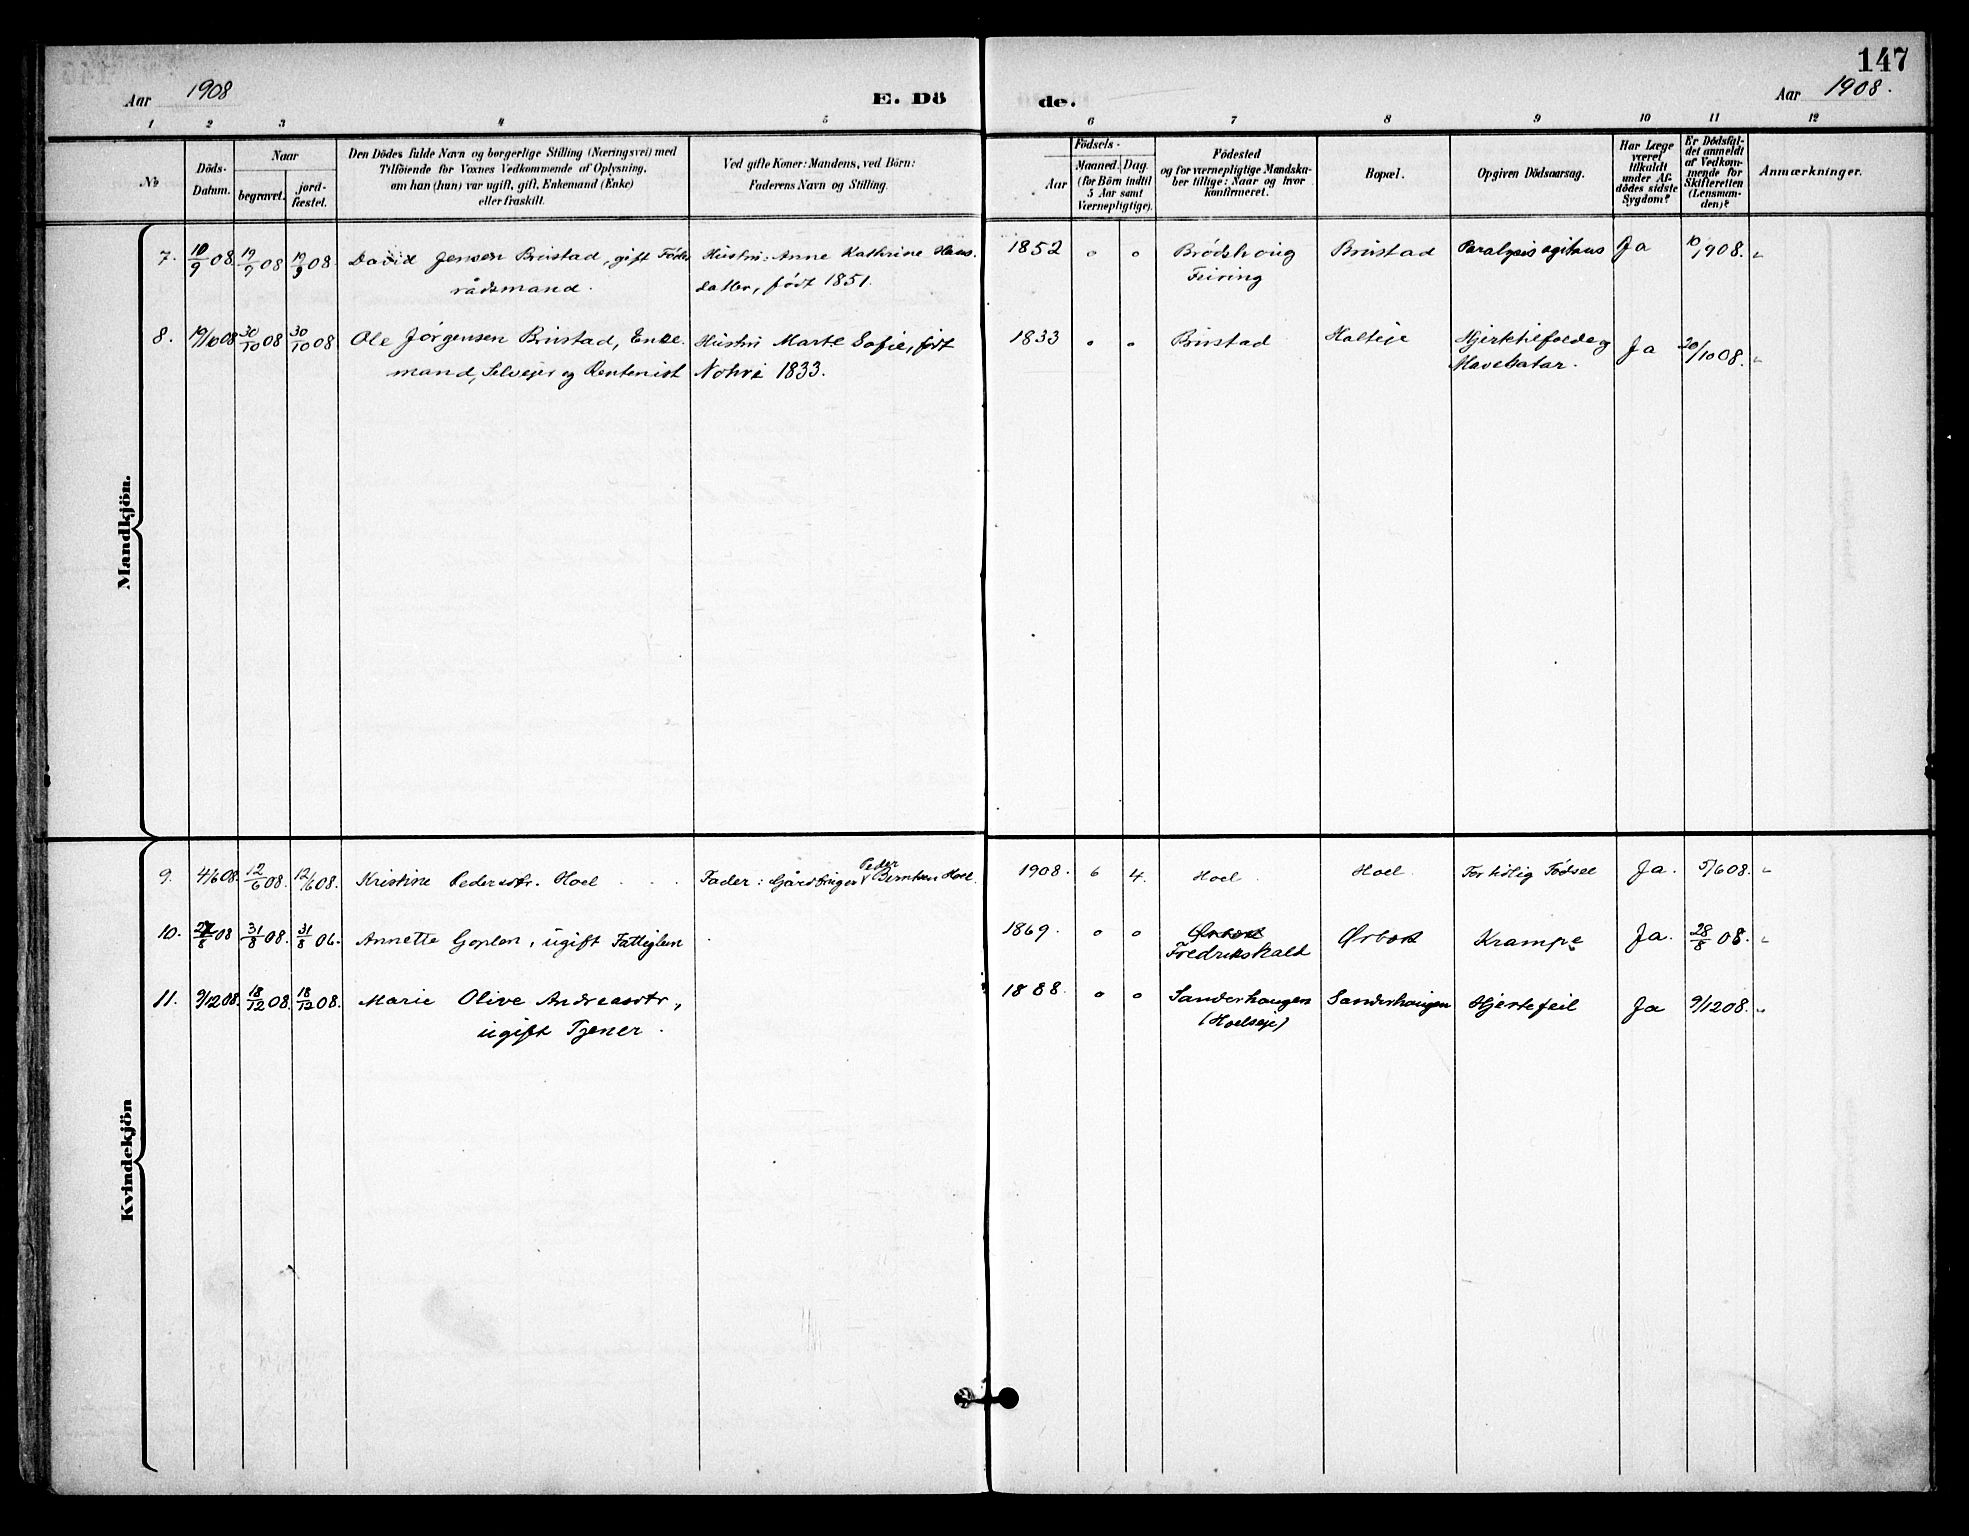 147
Aar 1908
E. Dö
de.
Aar 1908.
1 2 3 4 5 6 7 8 9 10 11 12
No
Döds-
Datum.
Naar
begravet.
jord-
fæstet.
Den Dödes fulde Navn og borgerlige Stilling (Næringsvei) med
Tilföiende for Voxnes Vedkommende af Oplysning,
om han (hun) var ugift, gift, Enkemand (Enke)
eller fraskilt.
Ved gifte Koner: Mandens, ved Börn:
Faderens Navn og Stilling.
Födsels-
Aar
Maaned. Dag.
(for Börn indtil
5 Aar samt
Værnepligtige).
Födested
og for værnepligtige Mandska-
ber tillige: Naar og hvor
konfirmeret.
Bopæl.
Opgiven Dödsaarsag.
Har Læge
været
tilkaldt
under Af-
dödes sidste
Sygdom?
Er Dödsfal-
det anmeldt
af Vedkom-
mende for
Skifteretten
(Lensman-
den)?
Anmærkninger.
Mandkjön.
7. 10/9 08 19/9 08 19/9 08 David Jensen Brustad, gift Föde Hustru: Anne Kathrine Hans. 1852 o o Brödshoug Brustad Paralysis agitans Ja 10/908.
rådsmand. datter, født 1851. Feiring
8. 19/10 08 30/10 08 30/10 08 Ole Jörgensen Brustad, Enke. Hustru Marte Sofie, født 1833 o o Brustad Holteje Hjerteklapfeil og Ja 20/10 08.
mand, Selveier og Rentenist 1833. Mavekatar.
Kvindekjön
9. 4/6 08. 12/6 08. 12/6 08. Kristine Pedersdtr. Hoel Fader: Gårdbruger Peder Berntsen Hoel. 1908. 6 4. Hoel. Hoel. For tidlig Födsel Ja. 5/6 08.
10. 08 31/8 08. 31/8 06. Annette Goplen, ugift Fattiglem 1869. o o Fredrikshald Ørbæk Krampe Ja. 28/8 08.
11. 9/12 08. 18/12 08. 18/12 08. Marie Olive Andreasdtr, 1888. o o Sanderhaugen Sanderhaugen Hjertefeil Ja 9/12 08.
ugift Tjener. (Hoelseje)